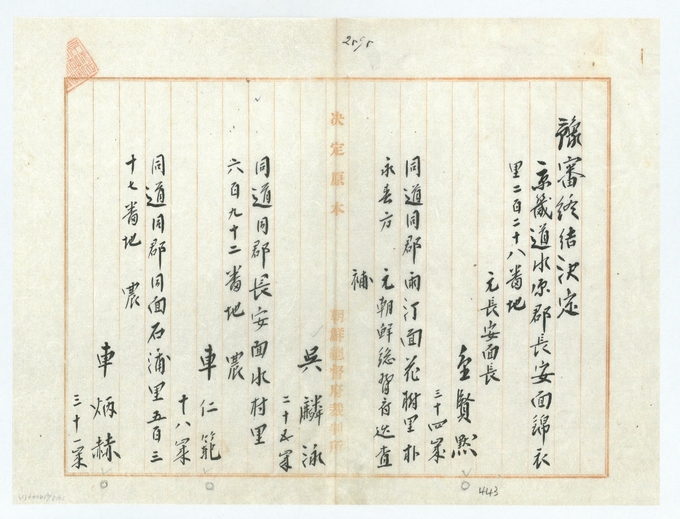 豫審終結決定
京畿道水原郡長安面錦衣
里二百二十八番地
元長安面長
金賢黙
三十四歳
同道同郡雨汀面花樹里朴
永春方 元朝鮮総督府巡査
補
吳麟泳
二十五歳
同道同郡長安面水村里
六百九十二番地 農
車仁範
十八歳
同道同郡同面石浦里五百三
十七番地 農
車炳赫
三十一歳
決定原本
朝鮮總督府裁判所
443